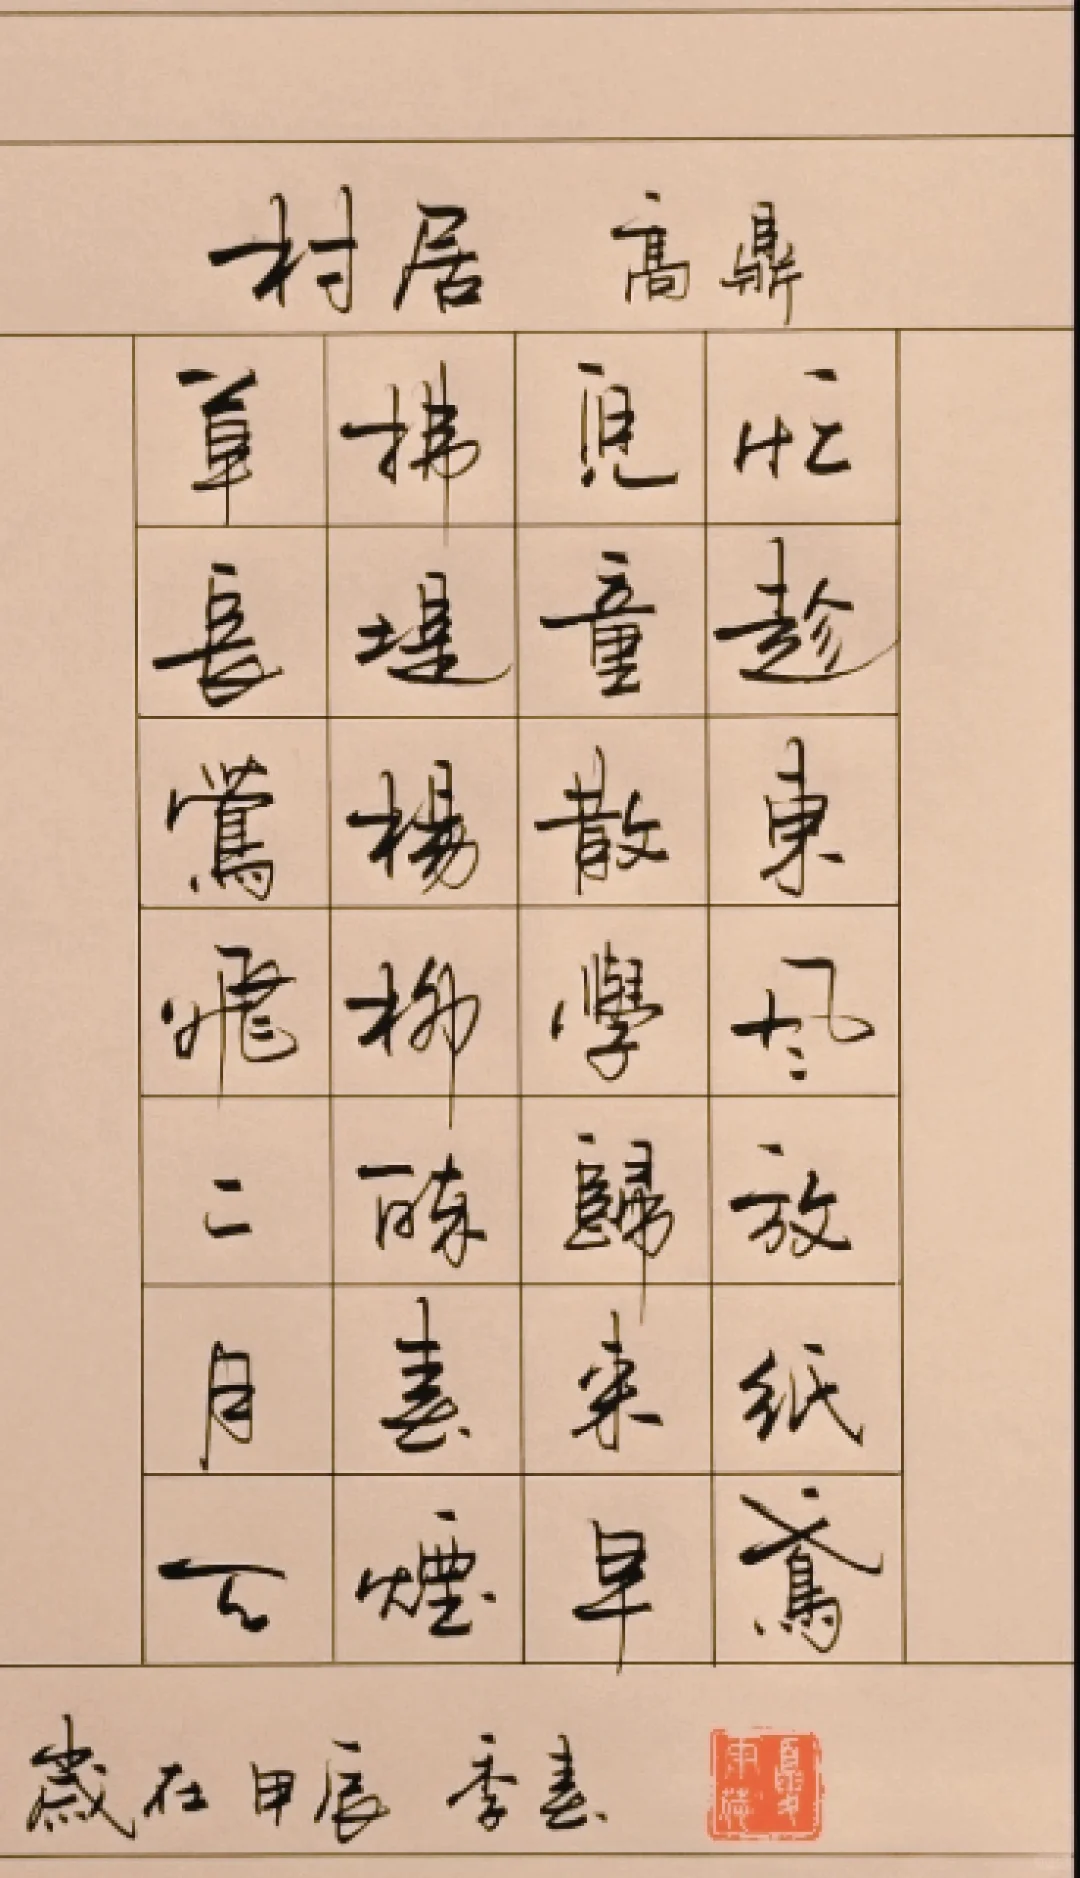 村居 高鼎
草長鶯飛二月天
拂堤楊柳醉春煙
兒童散學歸來早
忙趁東風放紙鳶
歲在甲辰 季春